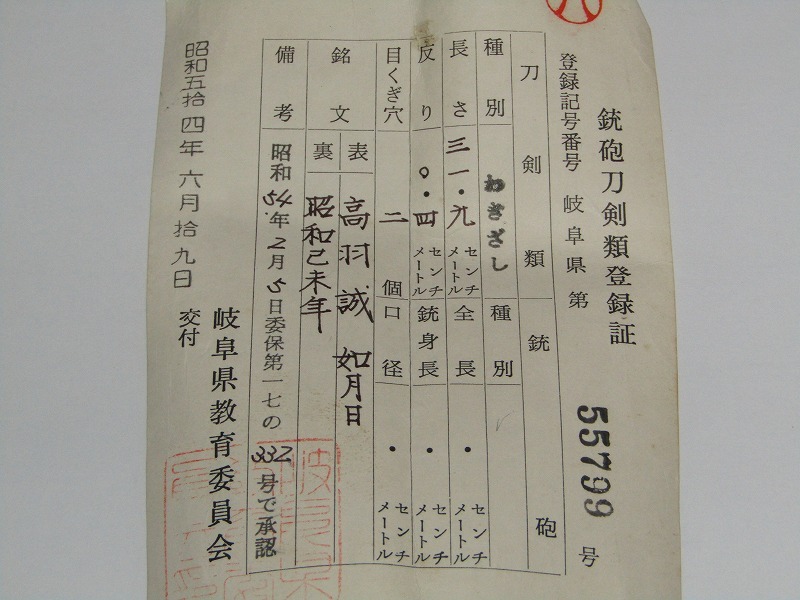 銃砲刀剣類登録証
登録記号番号 岐阜県 第 55799 号
刀剣類 銃砲
種別 わきざし 種別
長さ 三一・九 センチメートル 全長 ・ センチメートル
反り 〇・四 センチメートル 銃身長 ・ センチメートル
目くぎ穴 二 個 口径 ・ センチメートル
銘文 表 高羽誠 如月日
裏 昭和己未年
備考 昭和54年2月5日委保第一七の332号で承認
昭和五拾四年 六月拾九日 交付
岐阜県教育委員会